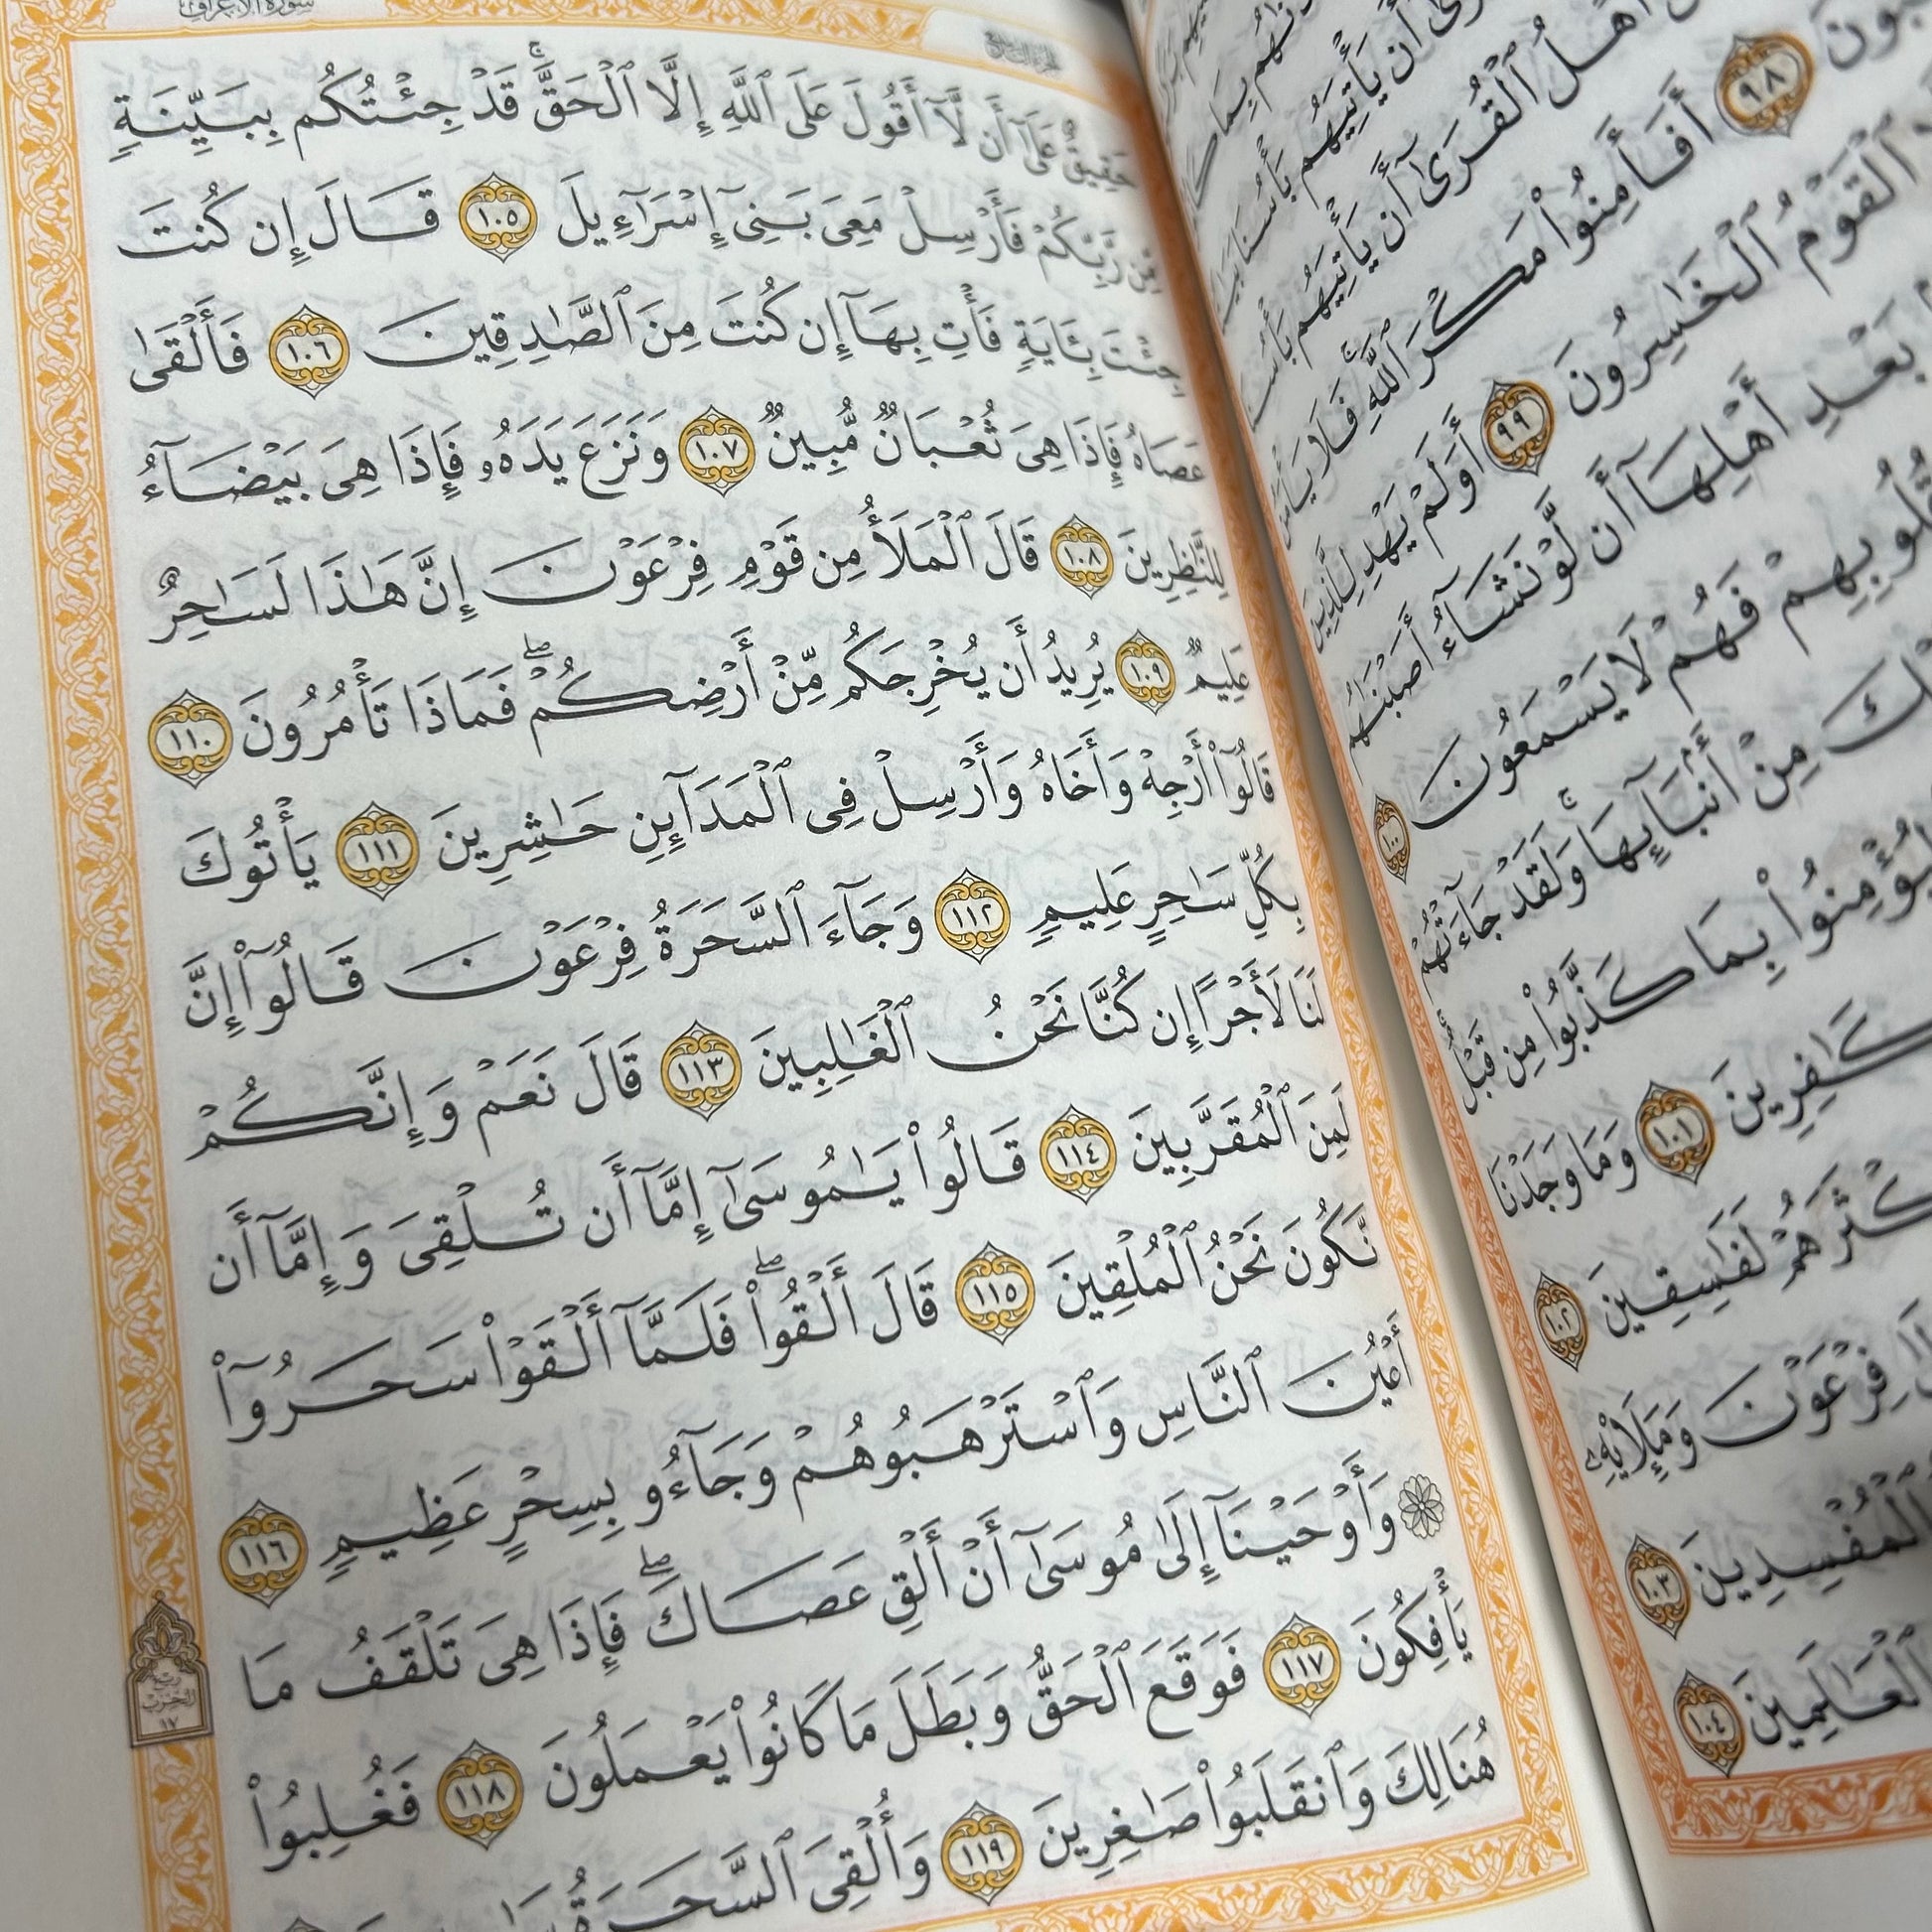 سورة الأعراف
حَقِيقٌ عَلَىٰٓ أَن لَّآ أَقُولَ عَلَى ٱللَّهِ إِلَّا ٱلْحَقَّ ۚ قَدْ جِئْتُكُم بِبَيِّنَةٍ
مِّن رَّبِّكُمْ فَأَرْسِلْ مَعِىَ بَنِىٓ إِسْرَٰٓءِيلَ ١٠٥ قَالَ إِن كُنتَ
جِئْتَ بِـَٔايَةٍ فَأْتِ بِهَآ إِن كُنتَ مِنَ ٱلصَّٰدِقِينَ ١٠٦ فَأَلْقَىٰ
عَصَاهُ فَإِذَا هِىَ ثُعْبَانٌ مُّبِينٌ ١٠٧ وَنَزَعَ يَدَهُۥ فَإِذَا هِىَ بَيْضَآءُ
لِلنَّٰظِرِينَ ١٠٨ قَالَ ٱلْمَلَأُ مِن قَوْمِ فِرْعَوْنَ إِنَّ هَٰذَا لَسَٰحِرٌ
عَلِيمٌ ١٠٩ يُرِيدُ أَن يُخْرِجَكُم مِّنْ أَرْضِكُمْ ۖ فَمَاذَا تَأْمُرُونَ ١١٠
قَالُوٓا۟ أَرْجِهْ وَأَخَاهُ وَأَرْسِلْ فِى ٱلْمَدَآئِنِ حَٰشِرِينَ ١١١ يَأْتُوكَ
بِكُلِّ سَٰحِرٍ عَلِيمٍ ١١٢ وَجَآءَ ٱلسَّحَرَةُ فِرْعَوْنَ قَالُوٓا۟ إِنَّ
لَنَا لَأَجْرًا إِن كُنَّا نَحْنُ ٱلْغَٰلِبِينَ ١١٣ قَالَ نَعَمْ وَإِنَّكُمْ
لَمِنَ ٱلْمُقَرَّبِينَ ١١٤ قَالُوا۟ يَٰمُوسَىٰٓ إِمَّآ أَن تُلْقِىَ وَإِمَّآ أَن
نَّكُونَ نَحْنُ ٱلْمُلْقِينَ ١١٥ قَالَ أَلْقُوا۟ ۖ فَلَمَّآ أَلْقَوْا۟ سَحَرُوٓا۟
أَعْيُنَ ٱلنَّاسِ وَٱسْتَرْهَبُوهُمْ وَجَآءُو بِسِحْرٍ عَظِيمٍ ١١٦
۞ وَأَوْحَيْنَآ إِلَىٰ مُوسَىٰٓ أَنْ أَلْقِ عَصَاكَ ۖ فَإِذَا هِىَ تَلْقَفُ مَا
يَأْفِكُونَ ١١٧ فَوَقَعَ ٱلْحَقُّ وَبَطَلَ مَا كَانُوا۟ يَعْمَلُونَ ١١٨ فَغُلِبُوا۟
هُنَالِكَ وَٱنقَلَبُوا۟ صَٰغِرِينَ ١١٩ وَأُلْقِىَ ٱلسَّحَرَةُ
ربع
الحزب
١٧
أَن يَأْتِيَهُم بَأْسُنَا
٩٨
أَهْلُ ٱلْقُرَىٰٓ أَن يَأْتِيَهُم بَأْسُنَا
أَفَأَمِنُوا۟ مَكْرَ ٱللَّهِ ۚ فَلَا
ٱلْقَوْمُ ٱلْخَٰسِرُونَ ٩٩ أَوَلَمْ يَهْدِ لِلَّذِينَ
بَعْدِ أَهْلِهَآ أَن لَّوْ نَشَآءُ أَصَبْنَٰهُم
قُلُوبِهِمْ فَهُمْ لَا يَسْمَعُونَ ١٠٠
مِنْ أَنۢبَآئِهَا ۚ وَلَقَدْ جَآءَتْهُمْ
لِيُؤْمِنُوا۟ بِمَا كَذَّبُوا۟ مِن قَبْلُ
ٱلْكَٰفِرِينَ ١٠١ وَمَا وَجَدْنَا
أَكْثَرَهُمْ لَفَٰسِقِينَ ١٠٢
فِرْعَوْنَ وَمَلَإِي۟هِۦ
ٱلْمُفْسِدِينَ ١٠٣
ٱلْعَٰلَمِينَ ١٠٤